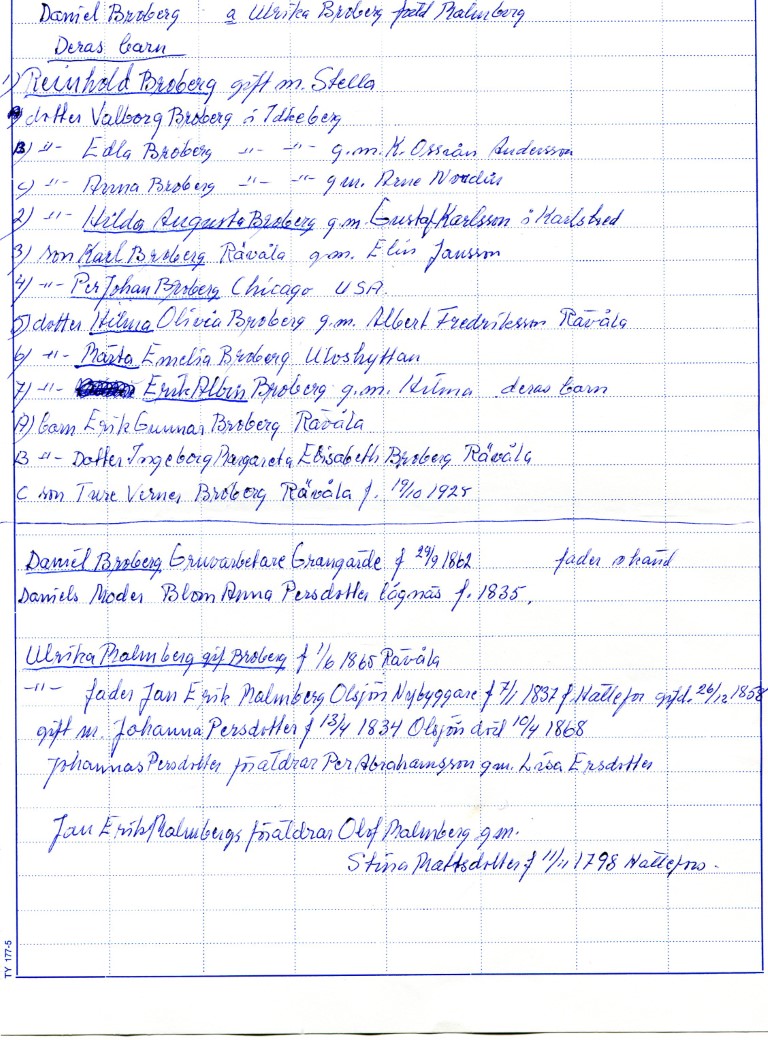 Daniel Broberg a Ulrika Broberg född Malmberg
Deras barn
1) Reinhold Broberg gift m. Stella
dotter Valborg Broberg i Idkeberg
B) -"- Edla Broberg -"- -"- g.m. K. Ossian Andersson
C) -"- Anna Broberg -"- -"- gm. Arne Nordin
2) -"- Hilda Augusta Broberg g.m. Gustaf Karlsson i Karlsbed
3) son Karl Broberg Råvåla g.m. Elin Jansson
4) -"- Per Johan Broberg Chicago USA.
5) dotter Hilma Olivia Broberg g.m. Albert Fredriksson Råvåla
6) -"- Märta Emelia Broberg Ulvshyttan
7) -"- Erik Albin Broberg g.m. Hilma deras barn
A) barn Erik Gunnar Broberg Råvåla
B -"- Dotter Ingeborg Margareta Elisabeth Broberg Råvåla
C son Ture Verner Broberg Råvåla f. 19/10 1925
Daniel Broberg Gruvarbetare Grangärde f 29/9 1862 fader okänd
Daniels Moder Blom Anna Persdotter Lågnäs f. 1835.
Ulrika Malmberg gift Broberg f 1/6 1865 Råvåla
-"- fader Jan Erik Malmberg Olsjön Nybyggare f 7/1 1837 f. Hällefor gifd. 26/12 1858
gift m. Johanna Persdotter f 13/4 1834 Olsjön död 10/4 1868
Johannas Persdotter föräldrar Per Abrahamsson gm. Lisa Ersdotter
Jan Erik Malmbergs föräldrar Olof Malmberg g.m.
Stina Mattsdotter f 11/11 1798 Hällefors.
TY 177-5